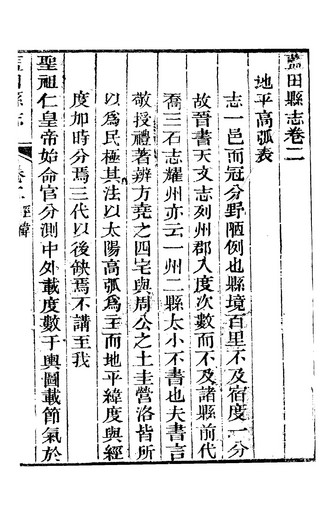 藍田縣志卷二
地平高弧表
志一邑而冠分野陋例也縣境百里不及宿度一分
故晉書天文志列州郡入度次數而不及諸縣前代
喬三石志耀州亦云一州二縣太小不書也夫書言
敬授禮著辨方堯之四宅與周公之土圭營洛皆所
以為民極其法以太陽高弧為主而地平緯度與經
度加時分焉三代以後缺焉不講至我
聖祖仁皇帝始命官分測中外載度數于輿圖載節氣於
藍田縣志
卷二
經緯